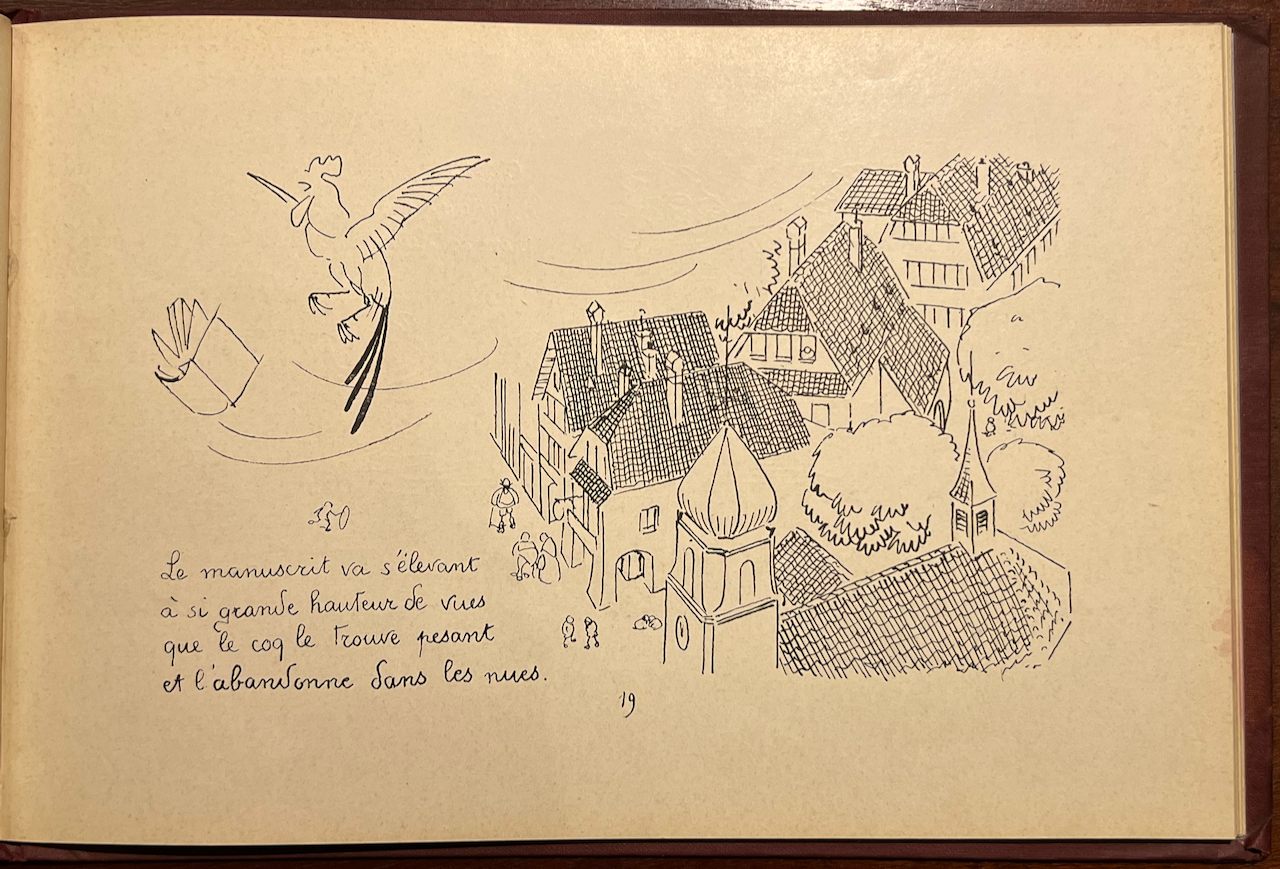 Le manuscrit va s'élevant
à si grande hauteur de vues
que le coq le trouve pesant
et l'abandonne dans les nues.
19